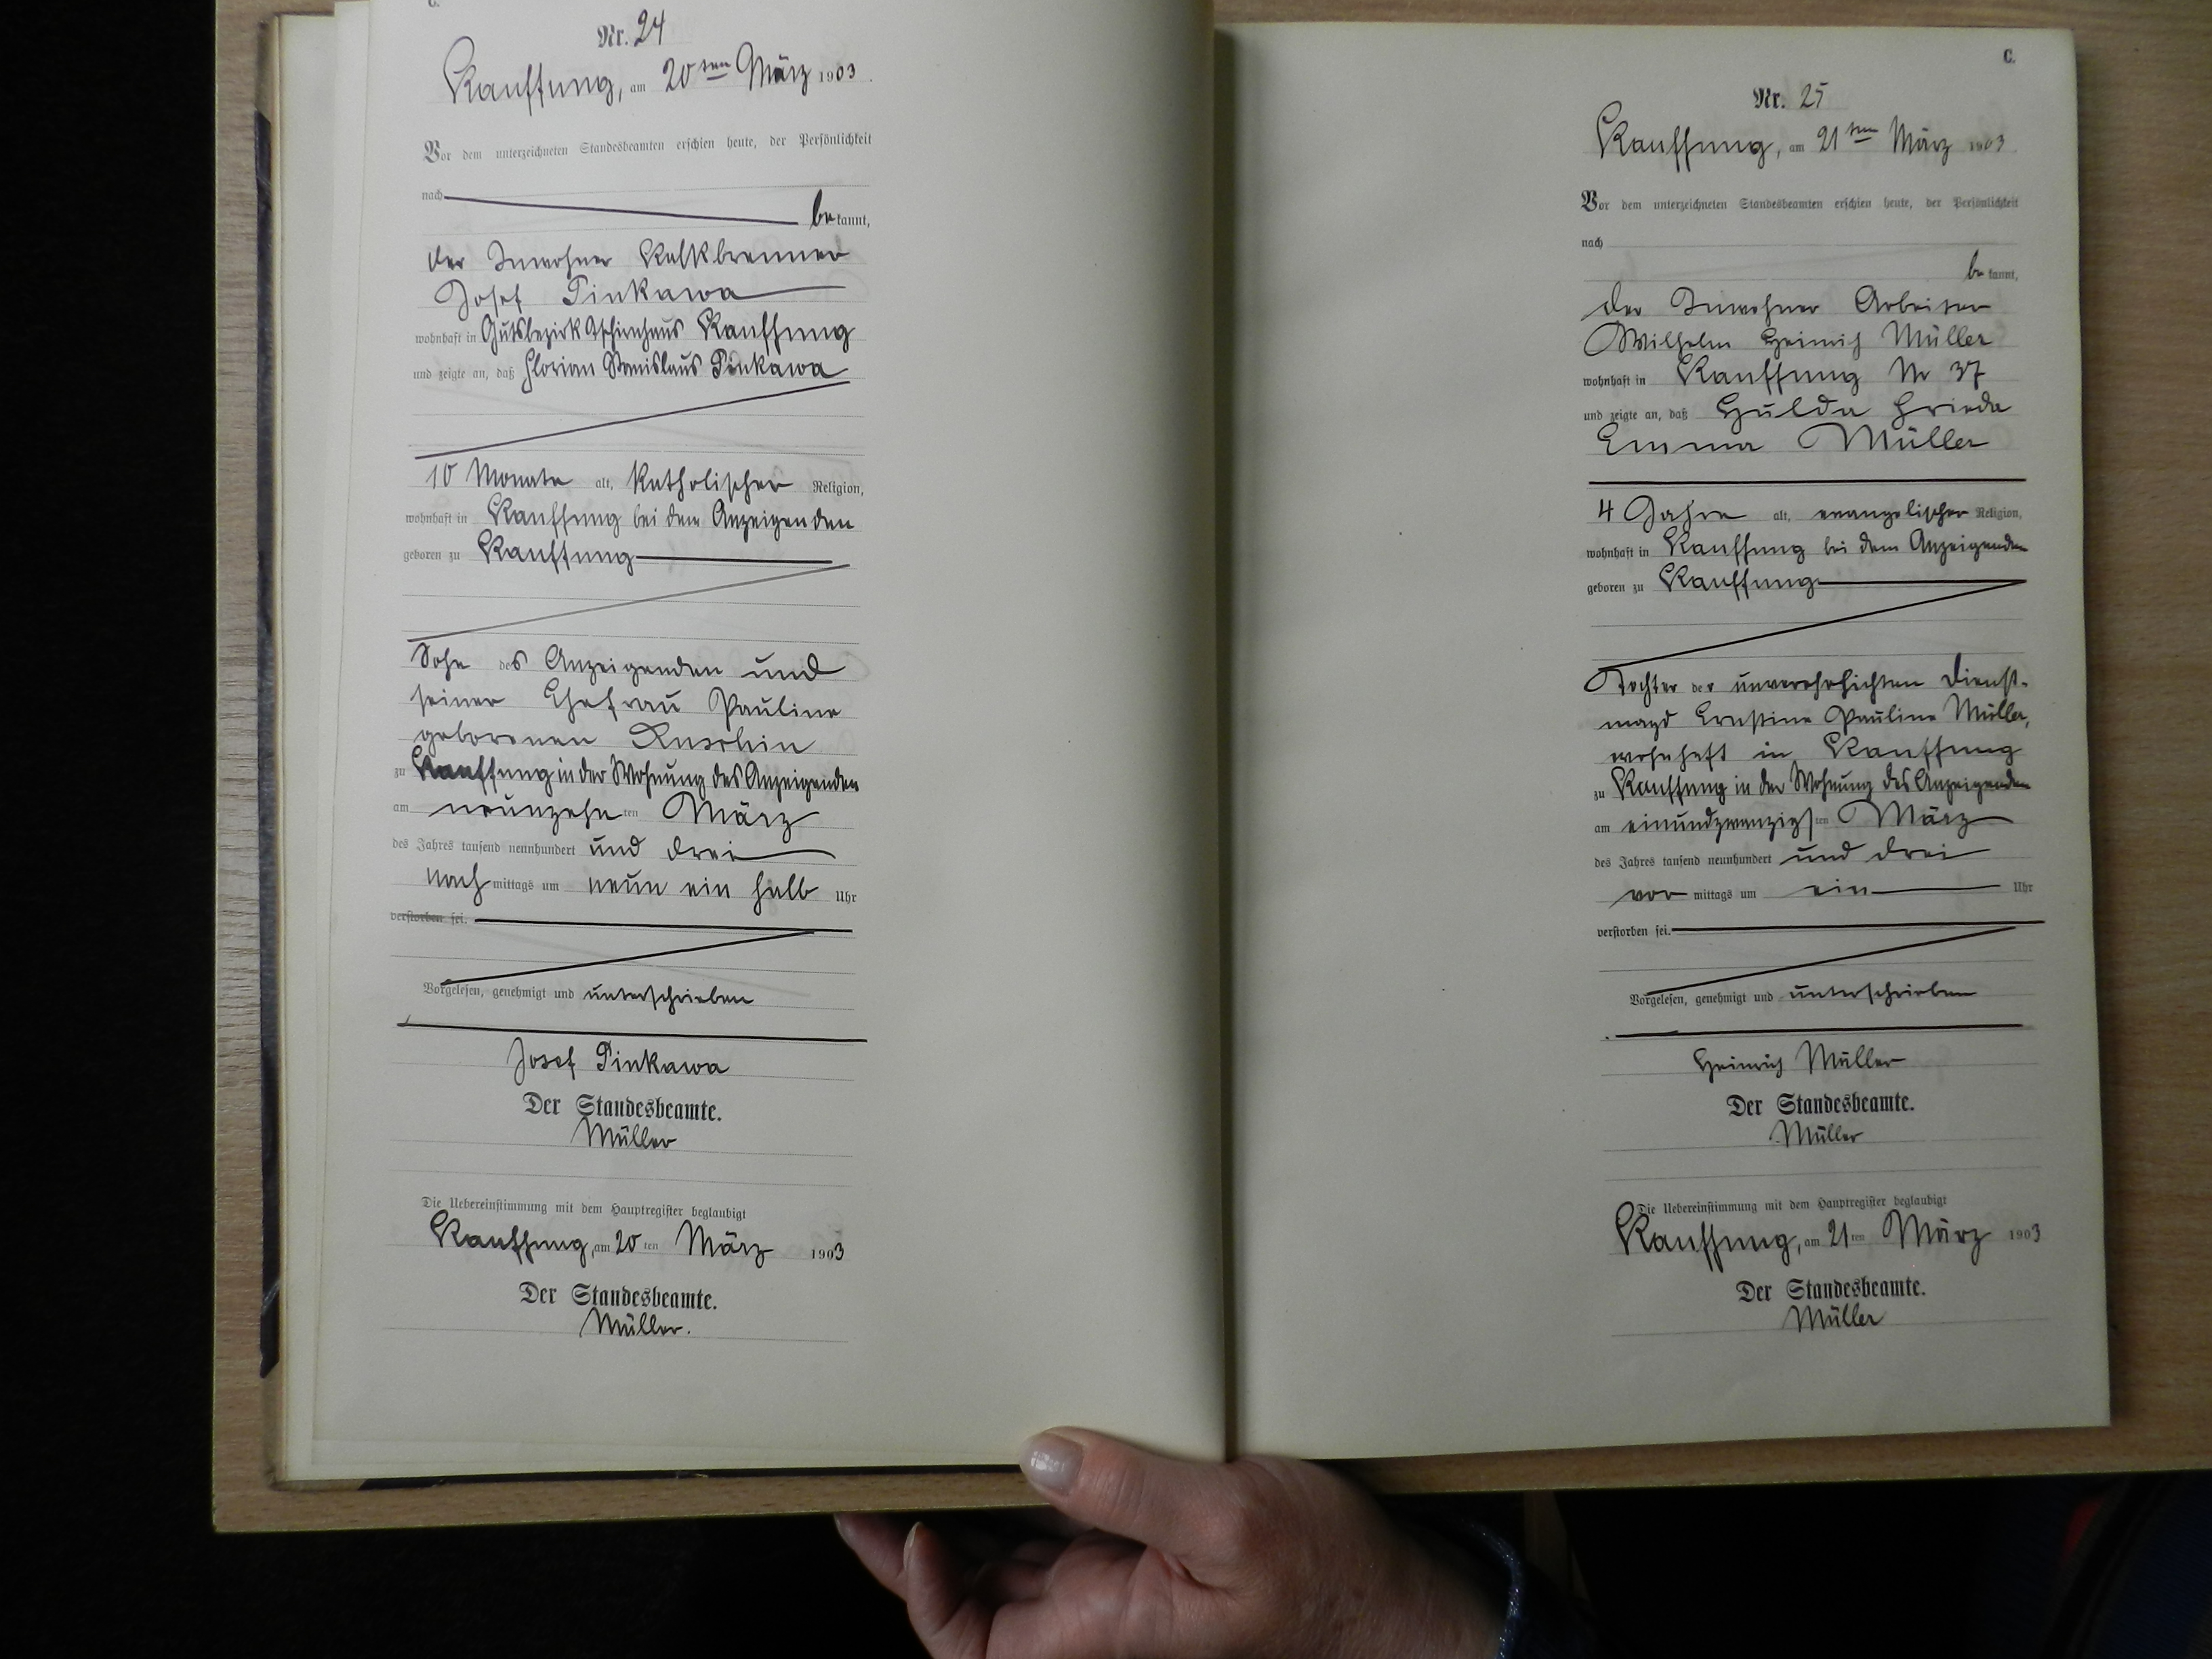 C.
Nr. 24
Kauffung, am 20ten März 1903.
Vor dem unterzeichneten Standesbeamten erschien heute, der Persönlichkeit
nach
bekannt,
der Inwohner Kalkbrenner
Josef Pinkawa
wohnhaft in Gutsbezirk Tschirnhaus Kauffung
und zeigte an, daß Florian Stanislaus Pinkawa
10 Monate alt, katholischer Religion,
wohnhaft in Kauffung bei dem Anzeigenden
geboren zu Kauffung
Sohn des Anzeigenden und
seiner Ehefrau Pauline
geborenen
zu Kauffung in der Wohnung des Anzeigenden
am neunzehnten März
des Jahres tausend neunhundert und drei
nachmittags um neun ein halb Uhr
verstorben sei.
Vorgelesen, genehmigt und unterschrieben
Josef Pinkawa
Der Standesbeamte.
Müller
Die Uebereinstimmung mit dem Hauptregister beglaubigt
Kauffung, am 20ten März 1903
Der Standesbeamte.
Müller.
C.
Nr. 25
Kauffung, am 21ten März 1903.
Vor dem unterzeichneten Standesbeamten erschien heute, der Persönlichkeit
nach
bekannt,
der Inwohner Arbeiter
Wilhelm Heinrich Müller
wohnhaft in Kauffung Nr 37
und zeigte an, daß Hulda Frieda
Emma Müller
4 Jahre alt, evangelischer Religion,
wohnhaft in Kauffung bei dem Anzeigenden
geboren zu Kauffung
Tochter der unverehelichten Dienst-
magd Ernstine Pauline Müller,
wohnhaft in Kauffung
zu Kauffung in der Wohnung des Anzeigenden
am einundzwanzigsten März
des Jahres tausend neunhundert und drei
vormittags um ein Uhr
verstorben sei.
Vorgelesen, genehmigt und unterschrieben
Heinrich Müller
Der Standesbeamte.
Müller
Die Uebereinstimmung mit dem Hauptregister beglaubigt
Kauffung, am 21ten März 1903
Der Standesbeamte.
Müller